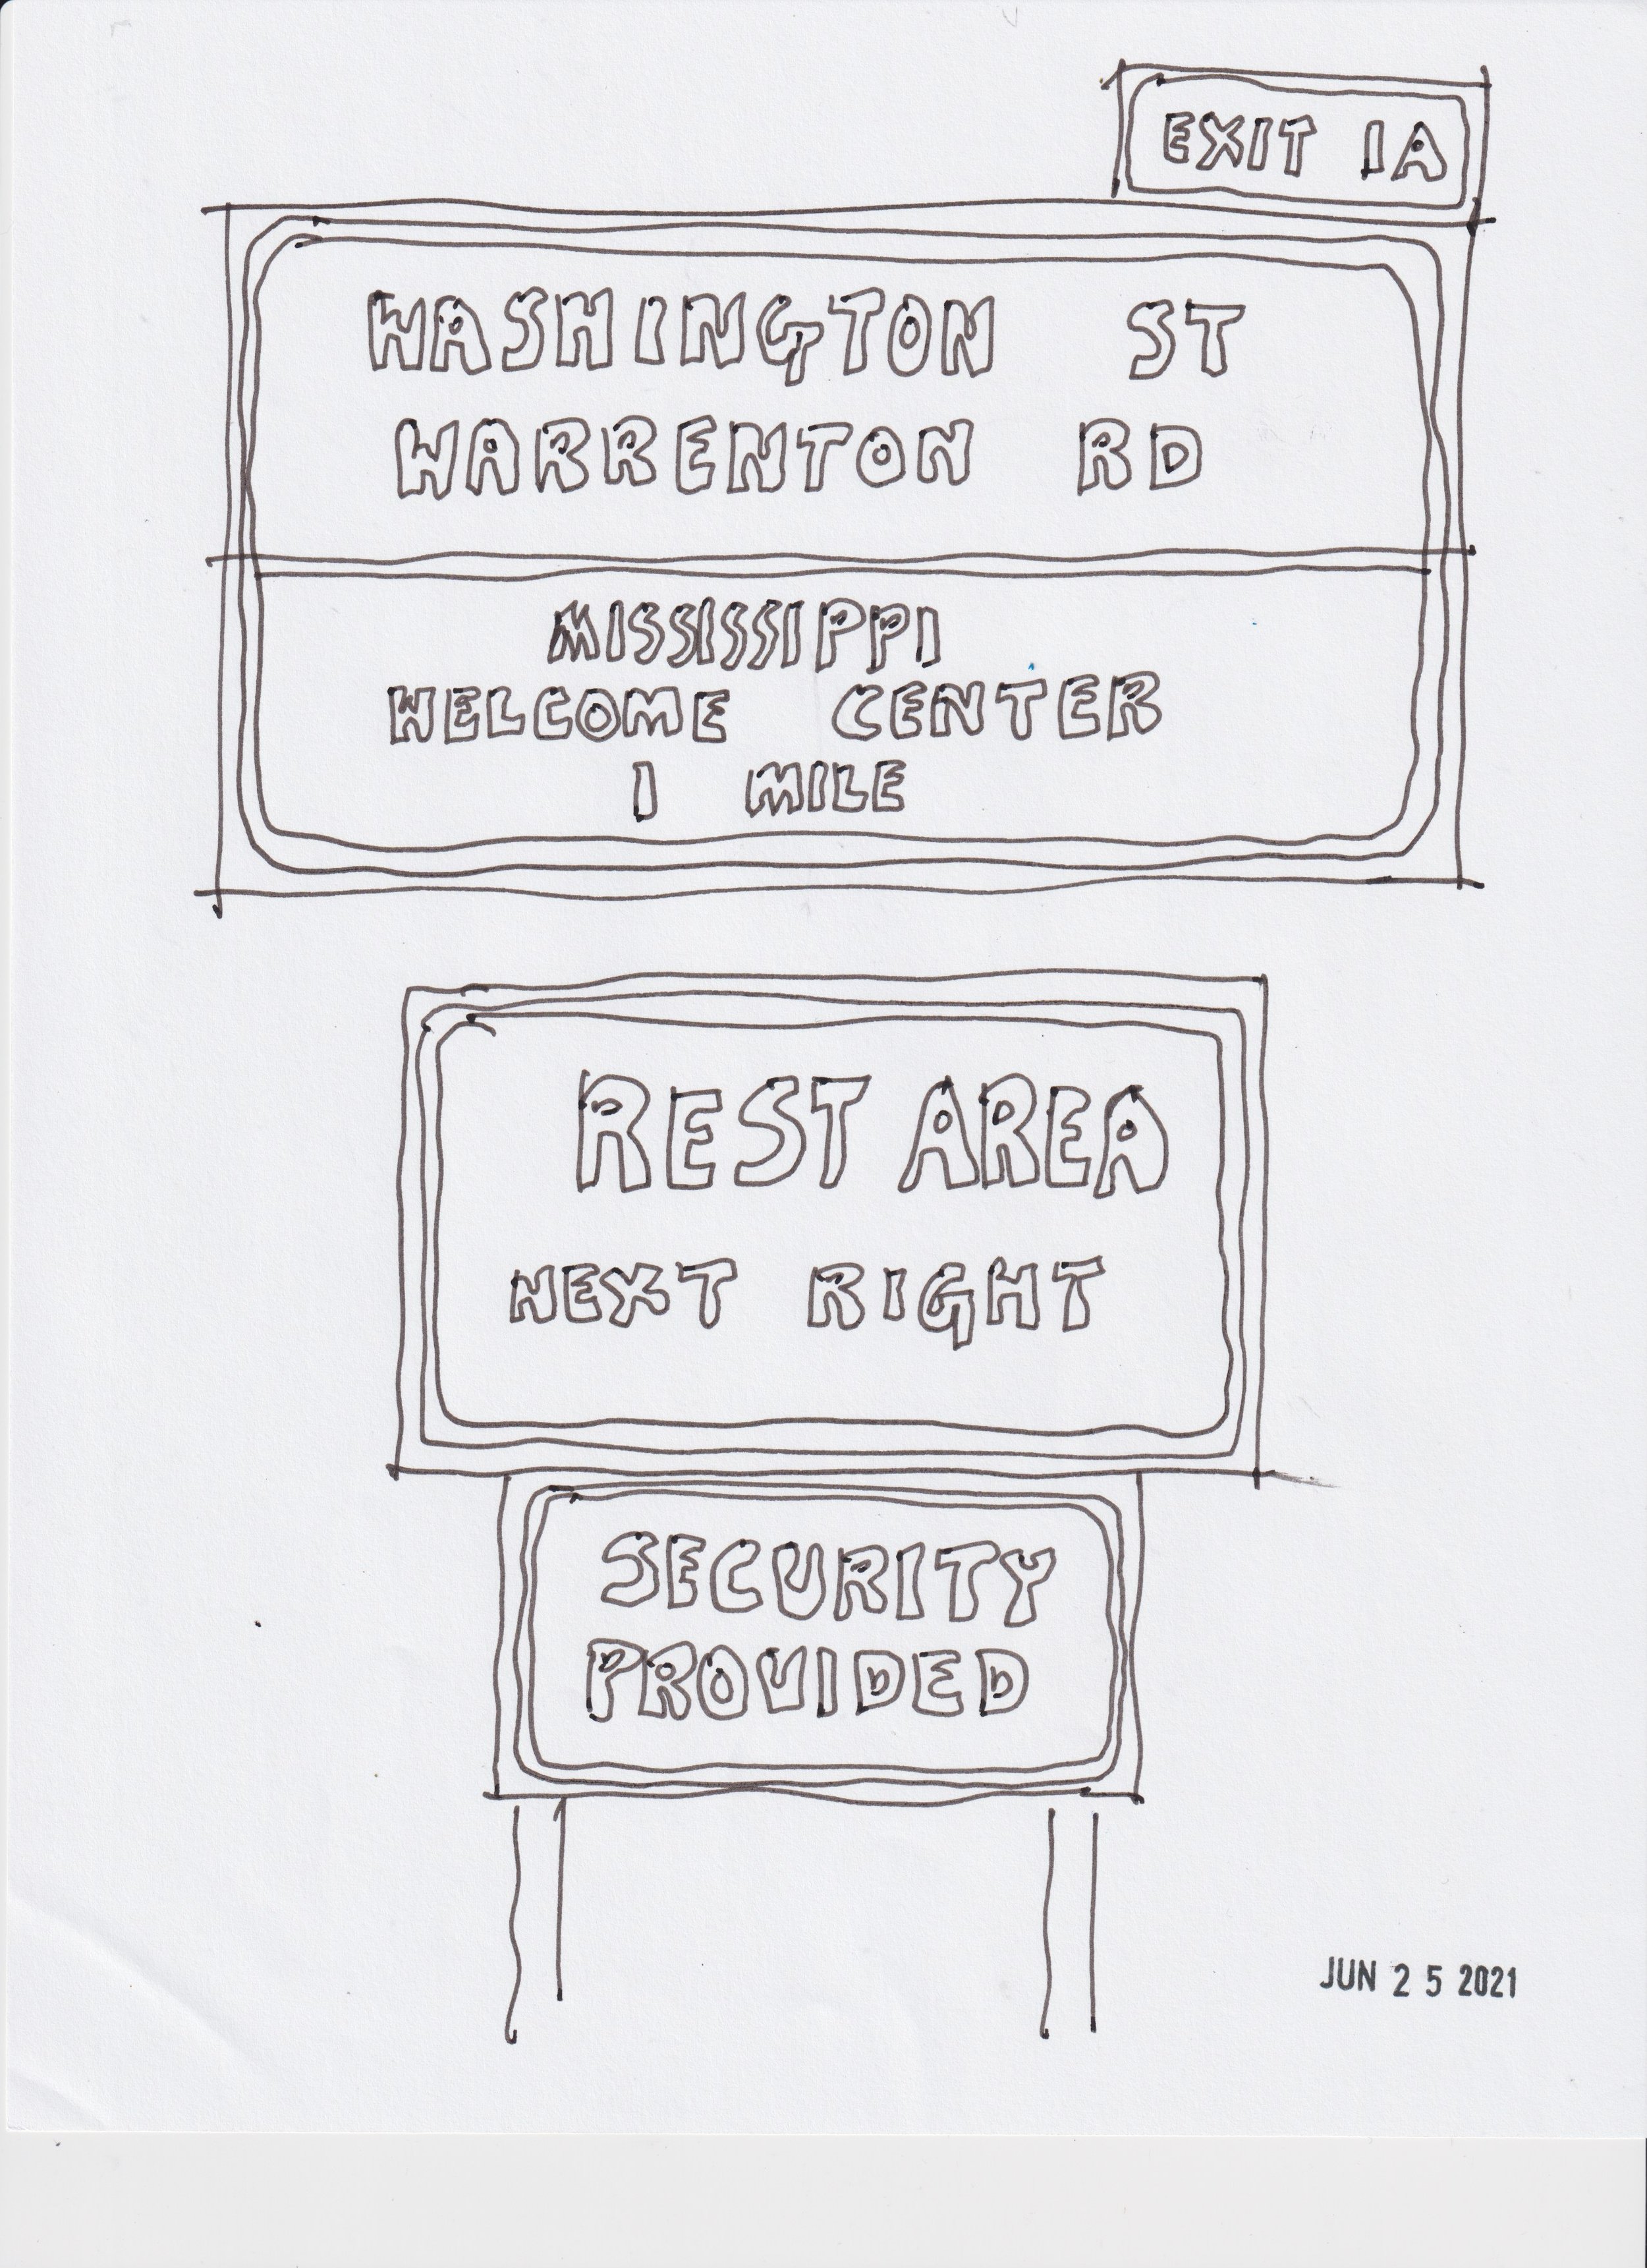 EXIT 1A
WASHINGTON ST
WARRENTON RD
MISSISSIPPI
WELCOME CENTER
1 MILE
REST AREA
NEXT RIGHT
SECURITY
PROVIDED
JUN 25 2021